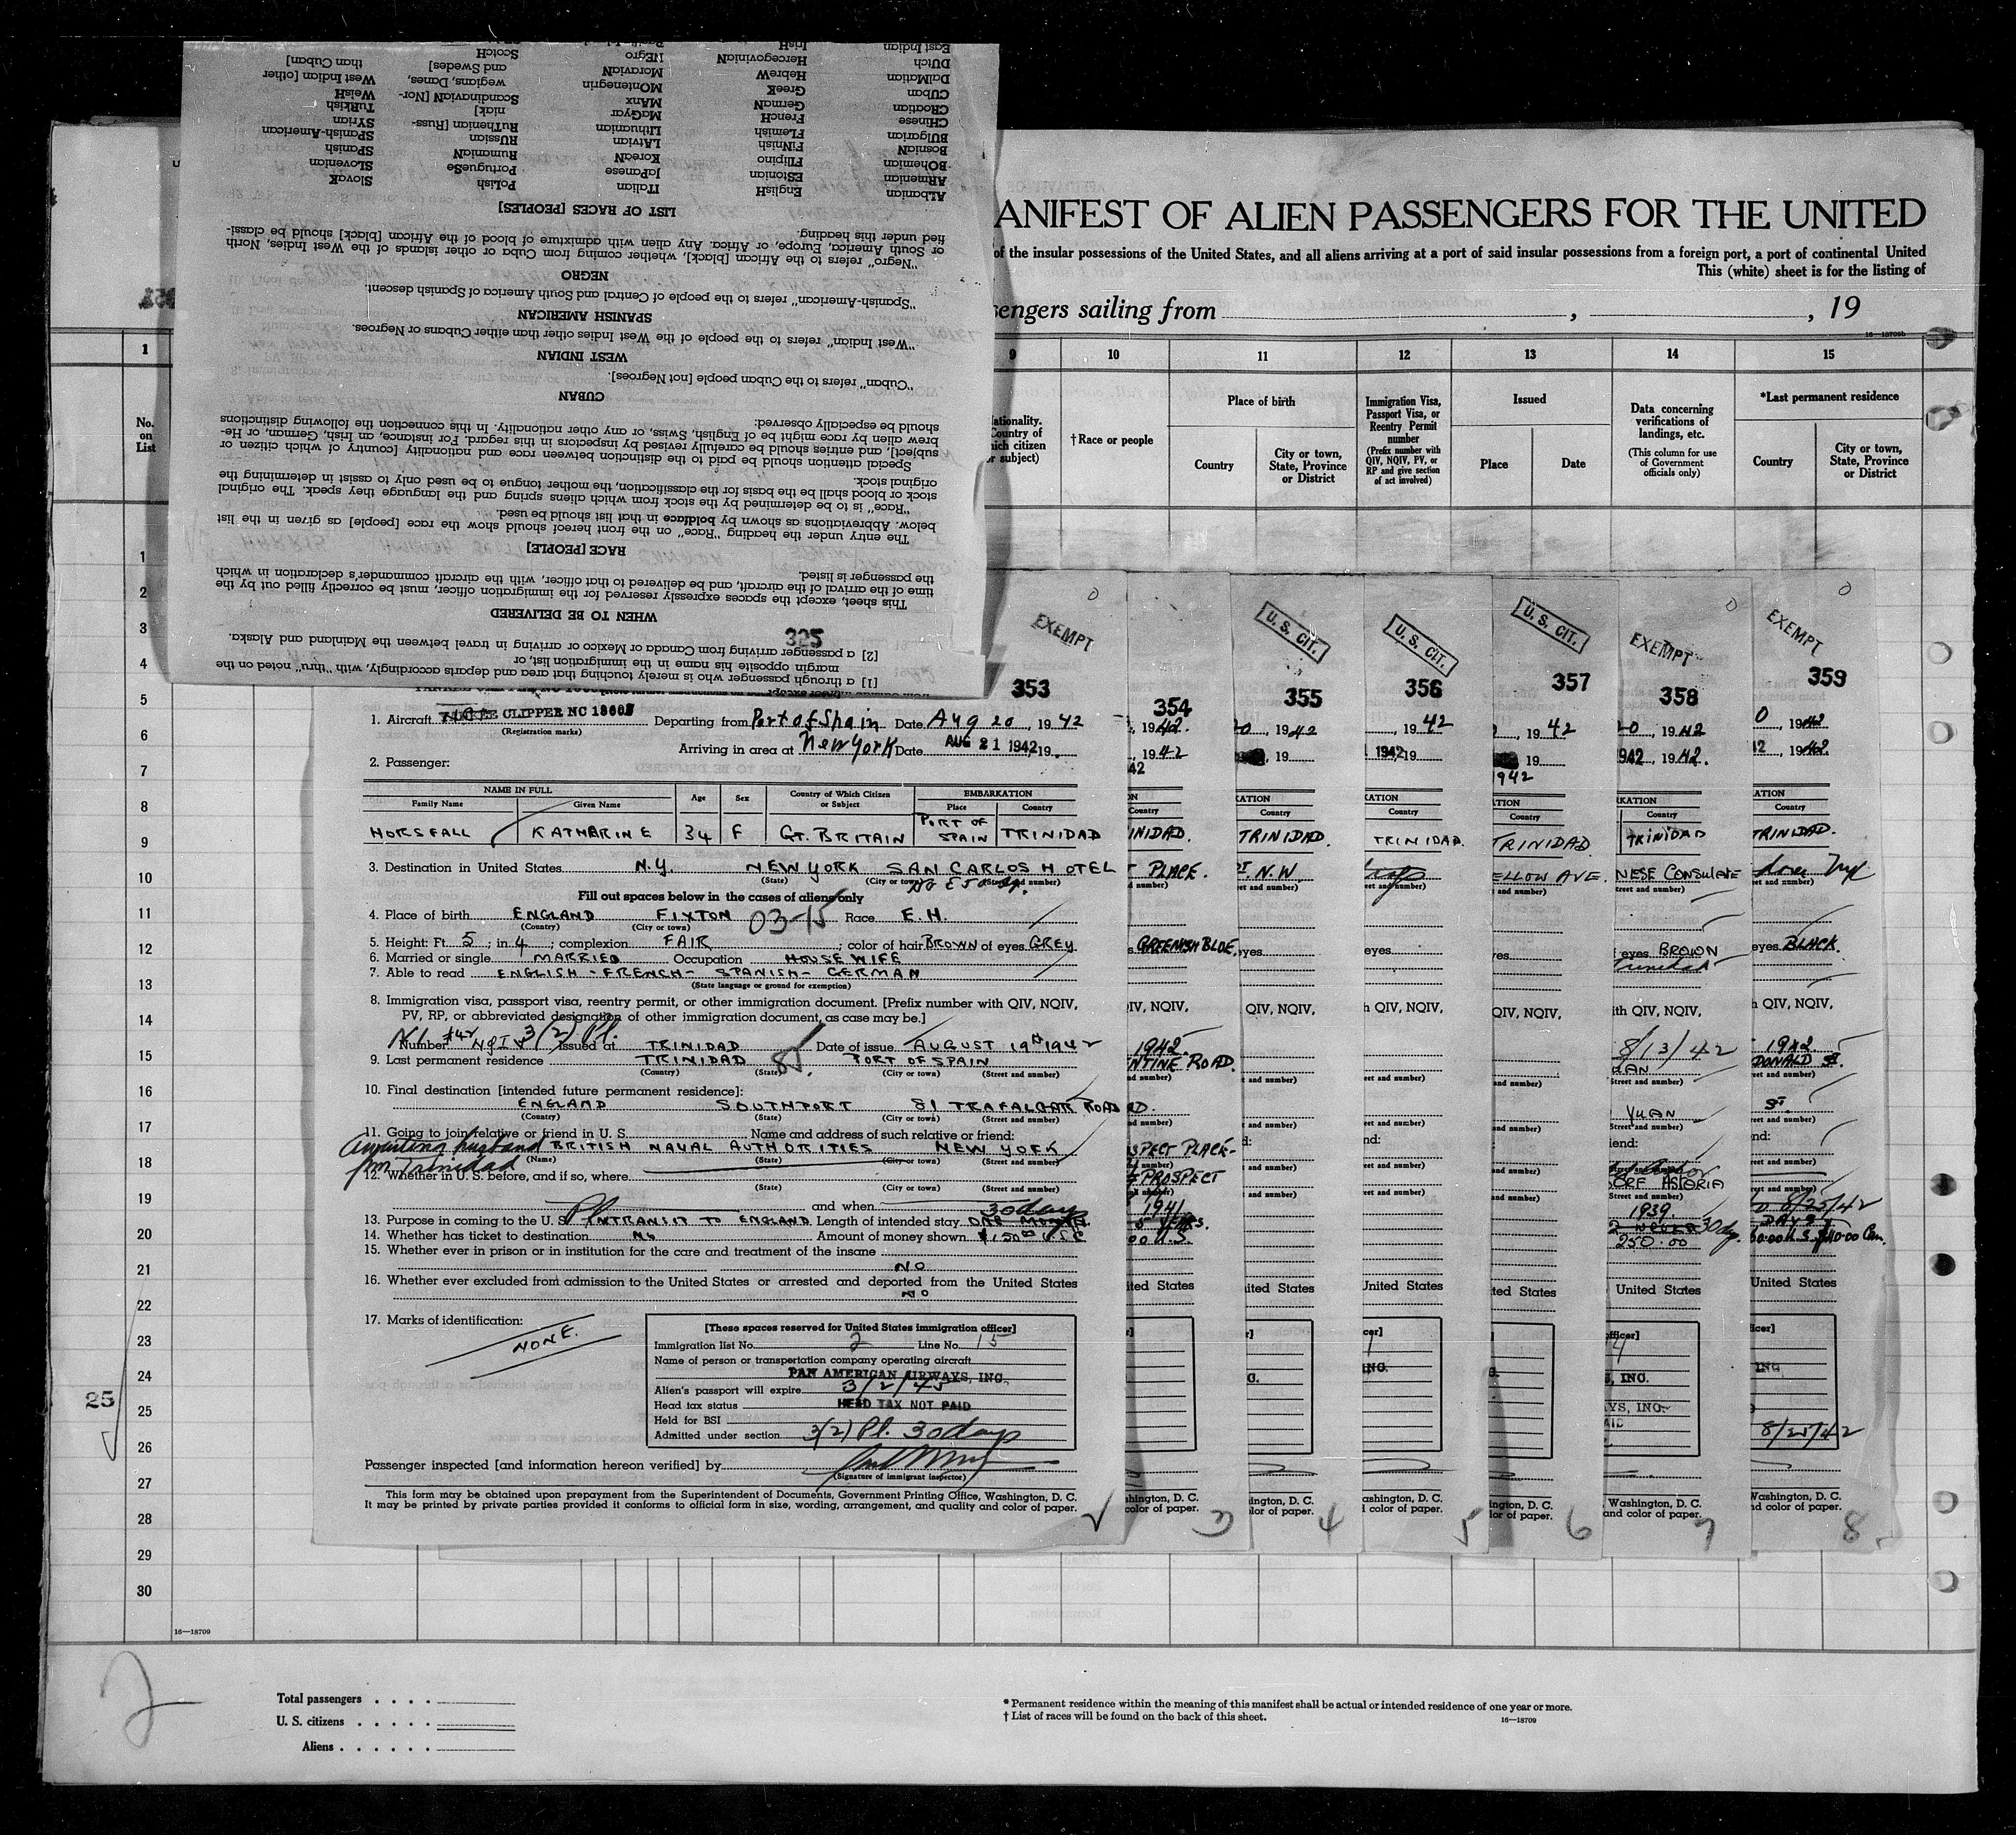 [1] a through passenger who is merely touching that area and departs accordingly, with "thru" noted on the
margin opposite his name in the immigration list, or
[2] a passenger arriving from Canada or Mexico or arriving in travel between the Mainland and Alaska.
325
WHEN TO BE DELIVERED
This sheet, except the spaces expressly reserved for the immigration officer, must be correctly filled out by the
time of the arrival of the aircraft, and be delivered to that officer, with the aircraft commander's declaration in which
the passenger is listed.
RACE [PEOPLE]
The entry under the heading "Race" on the front hereof should show the race [people] as given in the list
below. Abbreviations as shown by boldface in that list should be used.
"Race" is to be determined by the stock from which aliens spring and the language they speak. The original
stock or blood shall be the basis for the classification, the mother tongue to be used only to assist in determining the
original stock.
Special attention should be paid to the distinction between race and nationality [country of which citizen or
subject], and entries should be carefully revised by inspectors in this regard. For instance, an Irish, German, or He-
brew alien by race might be of English, Swiss, or any other nationality. In this connection the following distinctions
should be especially observed:
CUBAN
"Cuban" refers to the Cuban people [not Negroes].
WEST INDIAN
"West Indian" refers to the people of the West Indies other than either Cubans or Negroes.
SPANISH AMERICAN
"Spanish-American" refers to the people of Central and South America of Spanish descent.
NEGRO
"Negro" refers to the African [black], whether coming from Cuba or other islands of the West Indies, North
or South America, Europe, or Africa. Any alien with admixture of blood of the African [black] should be classi-
fied under this heading.
LIST OF RACES [PEOPLES]
ALbanian EnglisH ITalian PoLish SlovaK
ARmenian EStonian JaPanese PortugueSe SLovenian
BOhemian FIlipino KoreaN RumaniaN SPanish
BosniaN FiNnish LAtvian RUssian SPanish-American
BUlgarian FLemish LIthuanian RuTHenian [Russ-
niak] SYrian
CHinese FrencH MaGyar TuRkish
CRoatian GermaN MAnx ScandinaviaN [Nor-
wegians, Danes,
and Swedes] WelsH
CUban GreeK MOntenegrin West Indian [other
than Cuban]
DalMatian HebreW MoraviaN
DUtch HercegoviniaN NEgro ScotcH
East Indian IrisH
MANIFEST OF ALIEN PASSENGERS FOR THE UNITED
of the insular possessions of the United States, and all aliens arriving at a port of said insular possessions from a foreign port, a port of continental United
This (white) sheet is for the listing of
sengers sailing from , , 19
16—18709b
1 9 10 11 12 13 14 15
No. on List
ationality. Country of which citizen or subject)
†Race or people
Place of birth
Country
City or town, State, Province or District
Immigration Visa, Passport Visa, or Reentry Permit number
(Prefix number with QIV, NQIV, PV, or RP and give section of act involved)
Issued
Place Date
Data concerning verifications of landings, etc.
(This column for use of Government officials only)
*Last permanent residence
Country
City or town, State, Province or District
1
2
3
4
5
6
7
8
9
10
11
12
13
14
15
16
17
18
19
20
21
22
23
24
25
26
27
28
29
30
25
EXEMPT
353
1. Aircraft YANKEE CLIPPER NC 18603 Departing from Port of Spain Date Aug 20, 1942
(Registration marks)
Arriving in area at New York Date AUG 21 1942 19
2. Passenger:
NAME IN FULL Age Sex Country of Which Citizen or Subject EMBARKATION
Family Name Given Name Place Country
HORSFALL KATHARINE 34 F GT. BRITAIN PORT OF SPAIN TRINIDAD
3. Destination in United States N.Y. NEW YORK SAN CARLOS HOTEL
(State) (City or town) (Street and number)
150 E 50 St.
Fill out spaces below in the cases of aliens only
4. Place of birth ENGLAND FIXTON 03-15 Race E.H.
(Country) (City or town)
5. Height: Ft. 5; in. 4; complexion FAIR; color of hair BROWN of eyes GREY
6. Married or single MARRIED Occupation HOUSEWIFE
7. Able to read ENGLISH - FRENCH - SPANISH - GERMAN
(State language or ground for exemption)
8. Immigration visa, passport visa, reentry permit, or other immigration document. [Prefix number with QIV, NQIV,
PV, RP, or abbreviated designation of other immigration document, as case may be.]
Number NQIV 3(2) Pl. Issued at TRINIDAD Date of issue AUGUST 19th 1942
9. Last permanent residence TRINIDAD 85. PORT OF SPAIN
(Country) (State) (City or town) (Street and number)
10. Final destination [intended future permanent residence]:
ENGLAND SOUTHPORT 81 TRAFALGAR ROAD
(Country) (State) (City or town) (Street and number)
11. Going to join relative or friend in U. S. Name and address of such relative or friend:
Awaiting husband BRITISH NAVAL AUTHORITIES NEW YORK
(Name) (State) (City or town) (Street and number)
fm Trinidad
12. Whether in U. S. before, and if so, where
(State) (City or town) (Street and number)
and when
30 days
13. Purpose in coming to the U. S. Pl INTRANSIT TO ENGLAND Length of intended stay ONE MONTH
14. Whether has ticket to destination NO Amount of money shown $150.00 USC
15. Whether ever in prison or in institution for the care and treatment of the insane
NO
16. Whether ever excluded from admission to the United States or arrested and deported from the United States
NO
17. Marks of identification:
NONE.
[These spaces reserved for United States immigration officer]
Immigration list No. 2 Line No. 15
Name of person or transportation company operating aircraft
PAN AMERICAN AIRWAYS, INC.
Alien's passport will expire 3/2/45
Head tax status HEAD TAX NOT PAID
Held for BSI
Admitted under section 3(2) Pl. 30 days
Passenger inspected [and information hereon verified] by
(Signature of immigrant inspector)
This form may be obtained upon prepayment from the Superintendent of Documents, Government Printing Office, Washington, D. C.
It may be printed by private parties provided it conforms to official form in size, wording, arrangement, and quality and color of paper.
354
, 1942.
, 1942
42
Country
INIDAD.
T PLACE.
GREENISH BLUE.
IV, NQIV,
1942
NTINE ROAD.
RD.
SPECT PLACE-
PROSPECT
1941
5 YEARS.
00 U.S.
ited States
shington, D. C.
color of paper.
3
U. S. CIT.
355
20, 1942
, 19
KATION
Country
TRINIDAD
ST. N.W.
eyes
QIV, NQIV,
ited States
ington, D. C.
lor of paper.
4
U. S. CIT.
356
, 1942
1942 19
KATION
Country
TRINIDAD.
eyes
h QIV, NQIV,
United States
INC.
ashington, D. C.
color of paper.
5
U. S. CIT.
357
, 1942
19
1942
TION
Country
TRINIDAD
ELLOW AVE.
yes
QIV, NQIV,
ted States
ngton, D. C.
lor of paper.
6
EXEMPT
358
20, 1942
1942, 1942.
RKATION
Country
TRINIDAD
NESE CONSULATE
eyes BROWN
Trinidad
ith QIV, NQIV,
8/13/42
YUAN
iend:
ORF ASTORIA
1939.
30 dy.
250.00
United States
officer]
, INC.
Washington, D. C.
and color of paper.
7
EXEMPT
359
0, 1942
12, 1942.
KATION
Country
TRINIDAD.
eyes BLACK.
h QIV, NQIV,
1942
DONALD S
ST.
nd:
8/25/42
DAYS
00.00 U.S. $40.00 Can.
United States
ficer]
ING
8/25/42
Washington, D. C.
nd color of paper.
8
16—18709
2
Total passengers . . . .
U. S. citizens . . . . .
Aliens . . . . . .
* Permanent residence within the meaning of this manifest shall be actual or intended residence of one year or more.
† List of races will be found on the back of this sheet.
16—18709